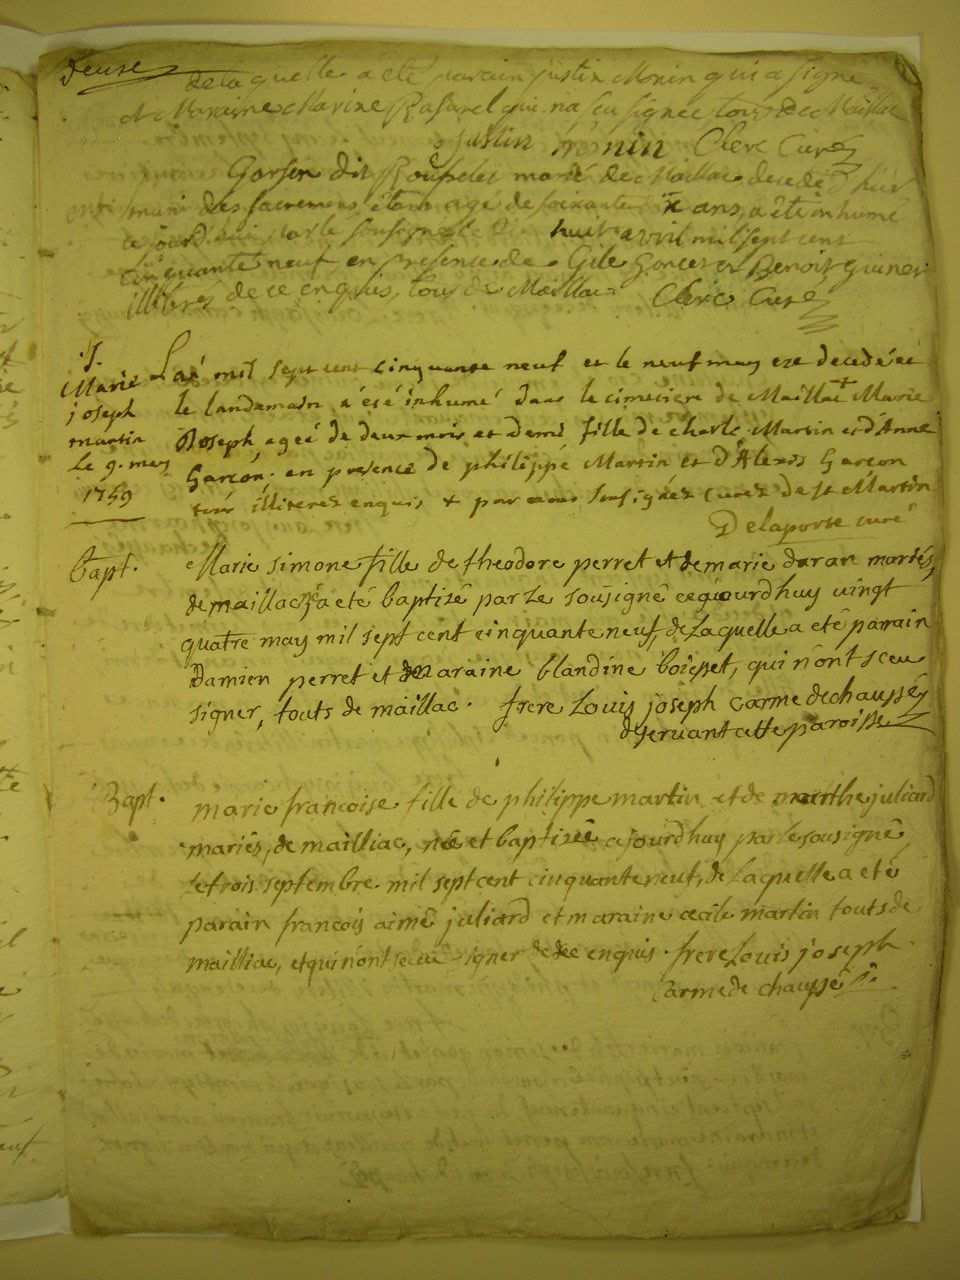 deuse
de laquelle a eté parain justin Monin qui a signe
et Maraine Marine qui na su signer tous de Maillac
justin monin Clerc Curé
Garsen dit marié de Maillac decedé hier
muni des sacremens étant agé de soixante ans, a été inhumé
ce jourd'hui par le soussigné le huit avril mil sept cent
cinquante neuf en presence de Gile et Benoit
illitérés de ce enquis, tous de Maillac Clerc Curé
S.
Marie
joseph
martin
le 9. may
1759
La mil sept cent cinquante neuf et le neuf may est decedéé et
le landemain a été inhumé dans le cimetiere de Maillac Marie
Joseph ageé de deux mois et demi fille de charle Martin et d'Anne
Garçon. en presence de philippe Martin et d'Alexis Garçon
illiterez enquis & par nous sousignéz curez de st Martin
Delaporte curé
bapt.
Marie simone fille de theodore perret et de marie daran mariés,
de maillac, a eté baptizé par le sousigné cejourdhuy vingt
quatre may mil sept cent cinquante neuf, de laquelle a eté parrain
Damien perret et maraine blandine boisset, qui n'ont sceu
signer, touts de maillac. frere Louis joseph carme dechaussé
deservant cette paroisse
Bapt.
marie francoise fille de philippe martin et de marthe juliard
mariés, de mailliac, née et baptizée cejourdhuy par le sousigné
le trois septembre mil sept cent cinquante neuf, de laquelle a eté
parain françois aimé juliard et maraine cecile martin touts de
mailliac, et qui n'ont sceu signer de ce enquis. frere Louis joseph
Carme de chaussé